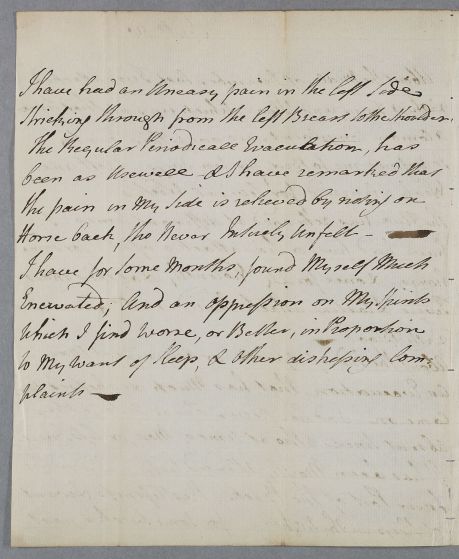 I have had an Uneasy pain in the left Side
Strieking through from the left Breast to the Shoulder.
The Regular Periodicall Evacuation, has
been as Usewell & I have remarked that
the pain in My Side is relieved by riding on
Horse back, tho Never Intirely Unfelt –
I have for Some Months, found Myself Much
Enervated, And an oppression on My Spirits
which I find worse, or Better, in Proportion
to My want of Sleep, & other distressing Com:
plaints